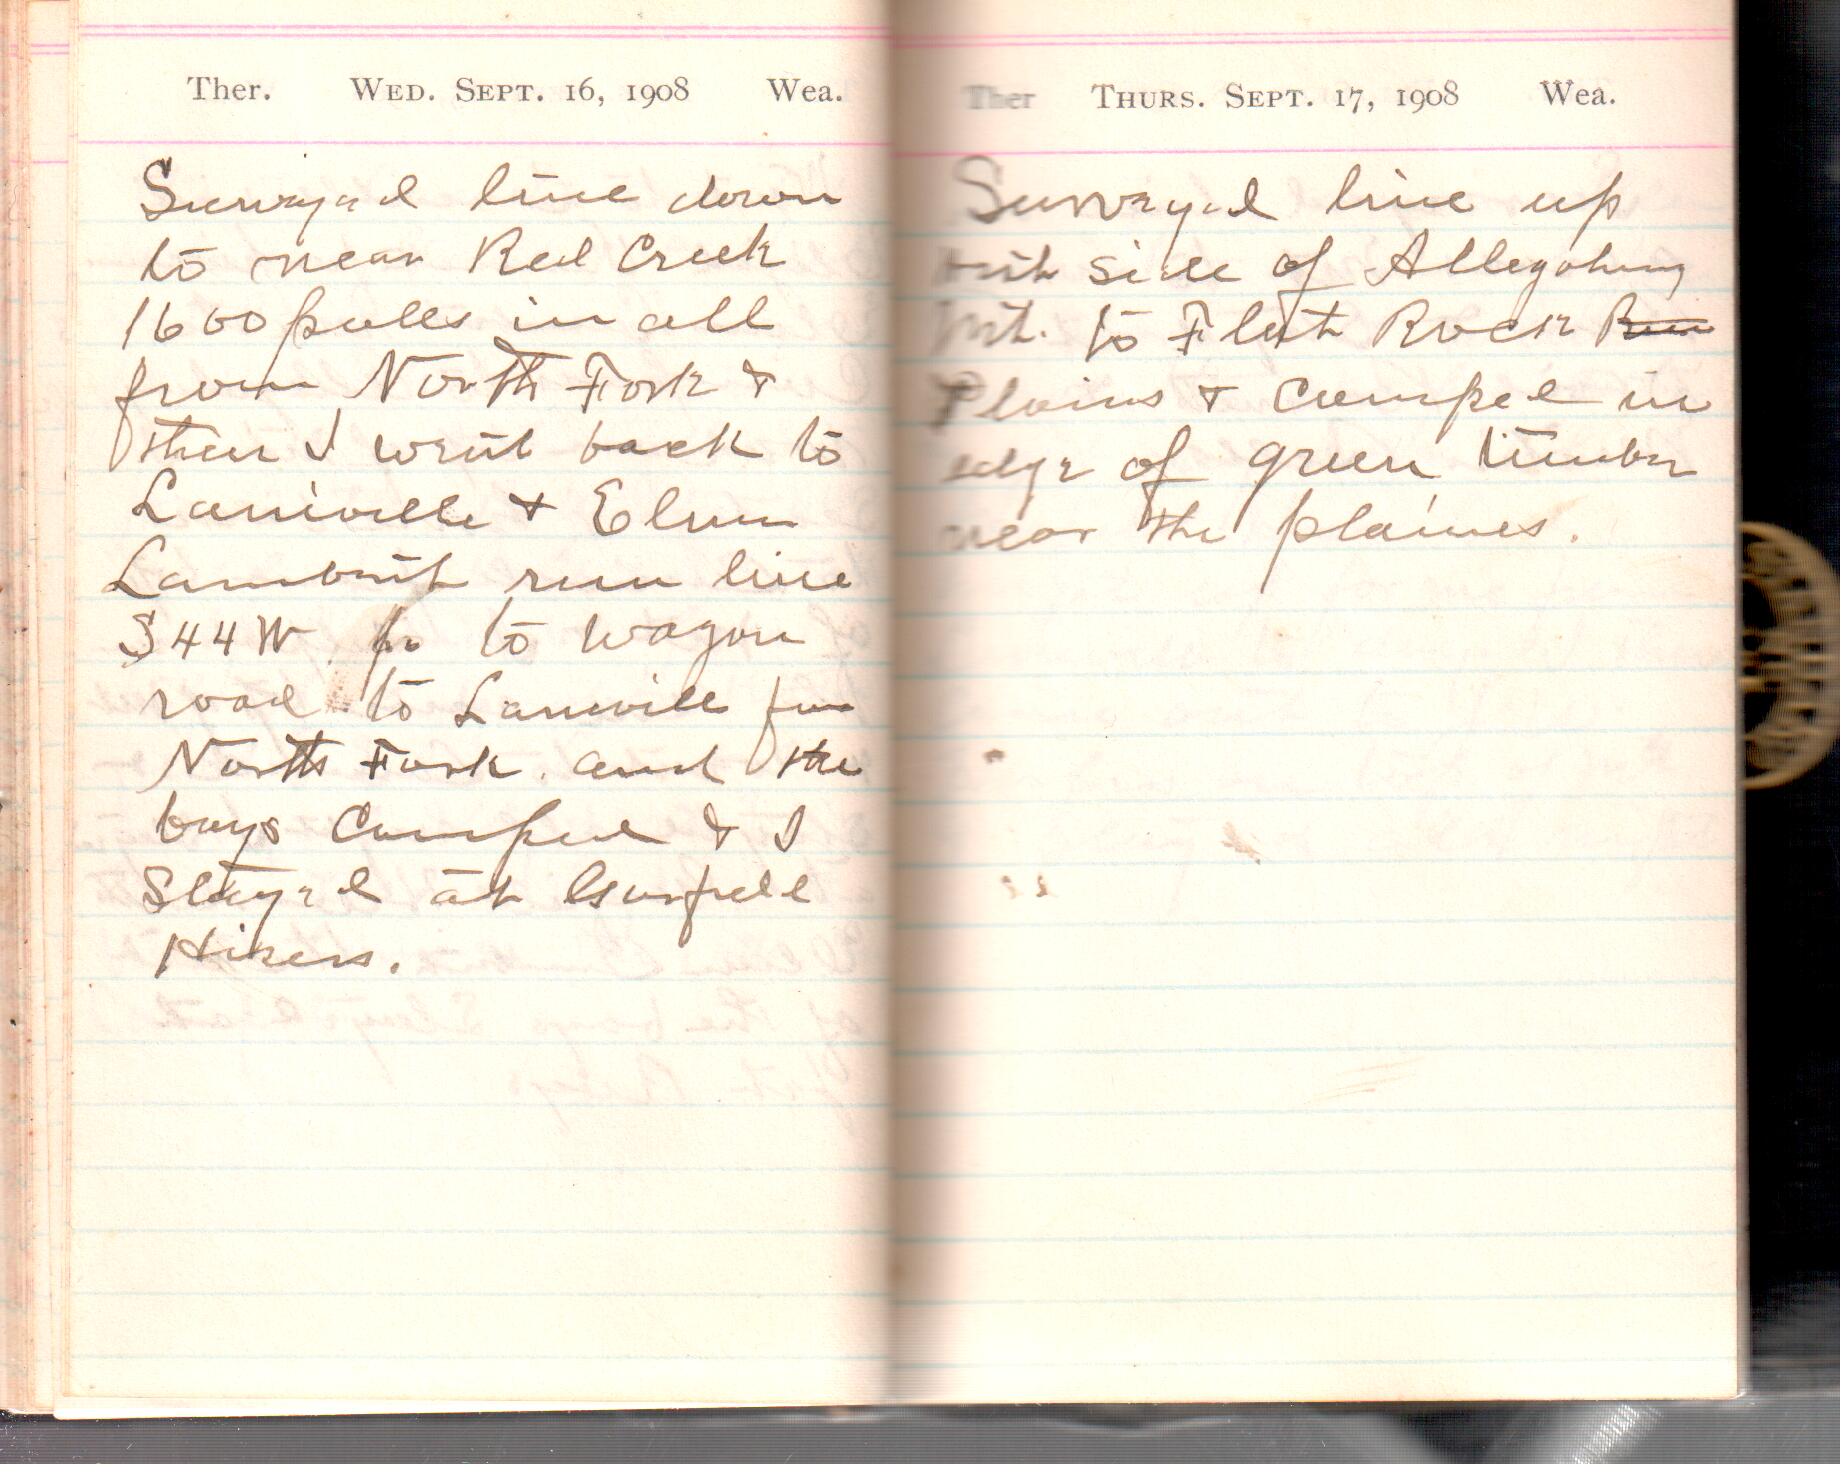 Ther. WED. SEPT. 16, 1908 Wea.
Surveyed line down
to near Red Creek
1600 poles in all
from North Fork &
then I went back to
Laniville & Elum
Lambert run line
S44W po to wagon
road to Laniville from
North Fork and the
boys Camped & I
Stayed at Garfield
Hikers.
Ther THURS. SEPT. 17, 1908 Wea.
Surveyed line up
side of Allegohany
Mt. to Flat Rock Run
Plains & Camped in
edge of green timber
near the plaines.